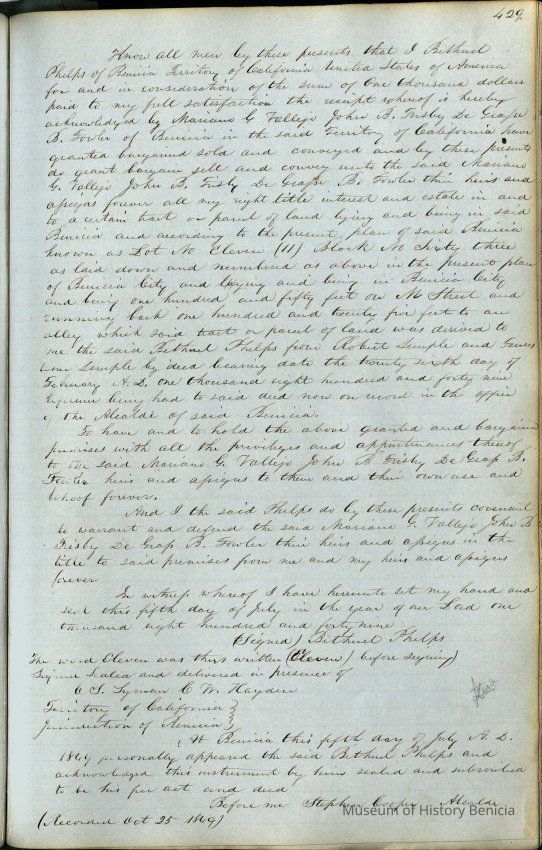 429
Know all men by these presents that I Bethuel
Phelps of Benicia Territory of California United States of America
for and in consideration of the sum of One thousand dollars
paid to my full satisfaction the receipt whereof is hereby
acknowledged by Mariano G Vallejo John B. Frisby De Grasse
B. Fowler of Benicia in the said Territory of California have
granted bargained sold and conveyed and by these presents
do grant bargain sell and convey unto the said Mariano
G. Vallejo John B. Frisby De Grasse B. Fowler their heirs and
assigns forever all my right title interest and estate in and
to a certain tract or parcel of land lying and being in said
Benicia and according to the present plan of said Benicia
known as Lot No Eleven (11) Block No Sixty three
as laid down and numbered as above in the present plan
of Benicia City and laying and being in Benicia City
and being one hundred and fifty feet on M Street and
running back one hundred and twenty five feet to an
alley which said tract or parcel of land was derived to
me the said Bethuel Phelps from Robert Semple and Frances
Semple by deed bearing date the twenty sixth day of
February A.D. one thousand eight hundred and forty nine
reference being had to said deed now on record in the office
of the Alcalde of said Benicia.
To have and to hold the above granted and bargained
premises with all the privileges and appurtenances thereof
to the said Mariano G. Vallejo John B Frisby De Grass B.
Fowler heirs and assigns to them and their own use and
behoof forever.
And I the said Phelps do by these presents covenant
to warrant and defend the said Mariano G. Vallejo John B
Frisby De Grass B. Fowler their heirs and assigns in the
title to said premises from me and my heirs and assigns
forever
In witness whereof I have hereunto set my hand and
seal this fifth day of July in the year of our Lord one
thousand eight hundred and forty nine
(Signed) Bethuel Phelps
The word Eleven was thus written (Eleven) before signing
Signed Sealed and delivered in presence of
C. S. Lyman C. W. Hayden
Territory of California }
Jurisdiction of Benicia }
At Benicia this fifth day of July A.D.
1849 personally appeared the said Bethuel Phelps and
acknowledged this instrument by him sealed and subscribed
to be his free act and deed
Before me Stephen Cooper Alcalde
(Recorded Oct 25 1849)
Museum of History Benicia